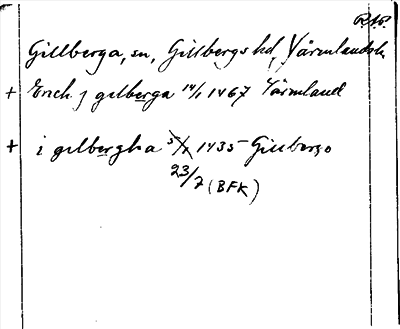 R.A.P.
Gillberga, sn, Gillbergs hd, Värmlands l.
+ Erick j gilberga 14/1 1467 Värmland
+ i gilbergha 5/7 1435 Gillberga
23/7 (BFK)